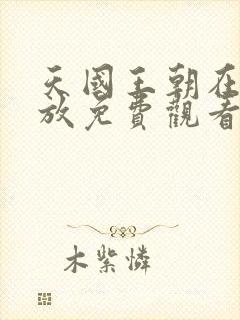 天國王朝在
放免費觀看
木紫憐